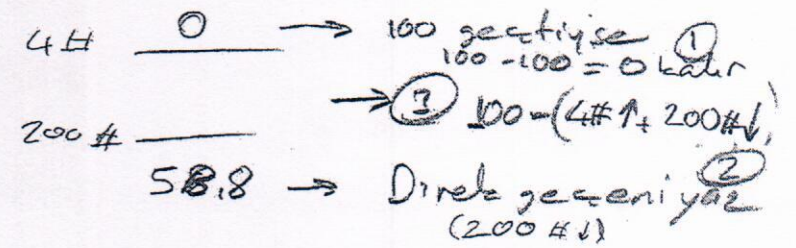 4# 0 → 100 geçtiyse ①
100-100=0 kalır
→ ③ 100-(4#↑+200#↓)
200#
→ Direk geçeni yaz ②
(200#↓)